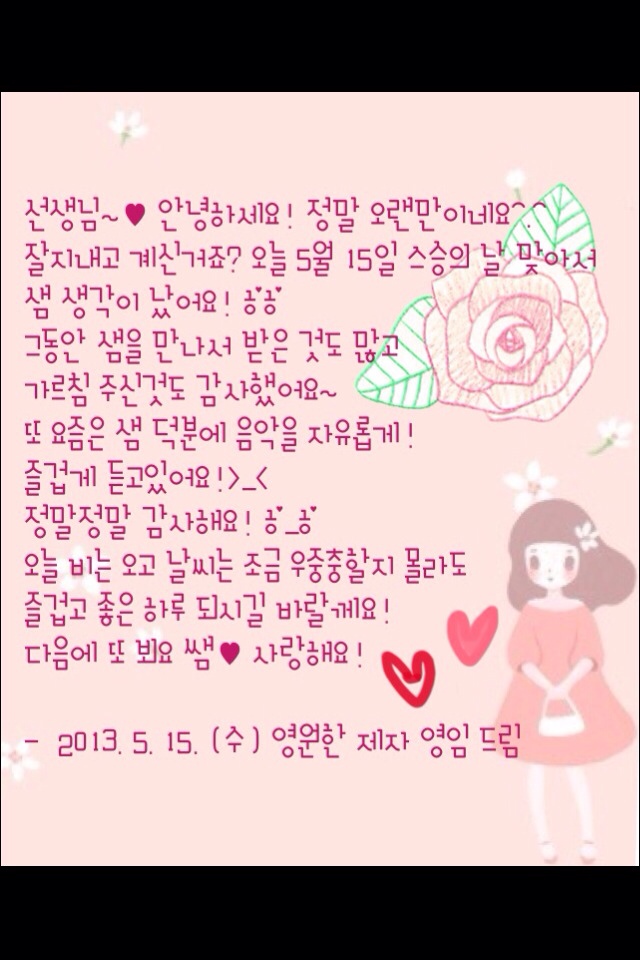 선생님~♥ 안녕하세요! 정말 오랜만이네요^.^
잘지내고 계신거죠? 오늘 5월 15일 스승의 날 맞아서
샘 생각이 났어요! ㅎㅎ
그동안 샘을 만나서 받은 것도 많고
가르침 주신것도 감사했어요~
또 요즘은 샘 덕분에 음악을 자유롭게!
즐겁게 듣고있어요!>_<
정말정말 감사해요! ㅎ_ㅎ
오늘 비는 오고 날씨는 조금 우중충할지 몰라도
즐겁고 좋은 하루 되시길 바랄께요!
다음에 또 뵈요 쌤♥ 사랑해요!
- 2013. 5. 15. (수) 영원한 제자 영임 드림